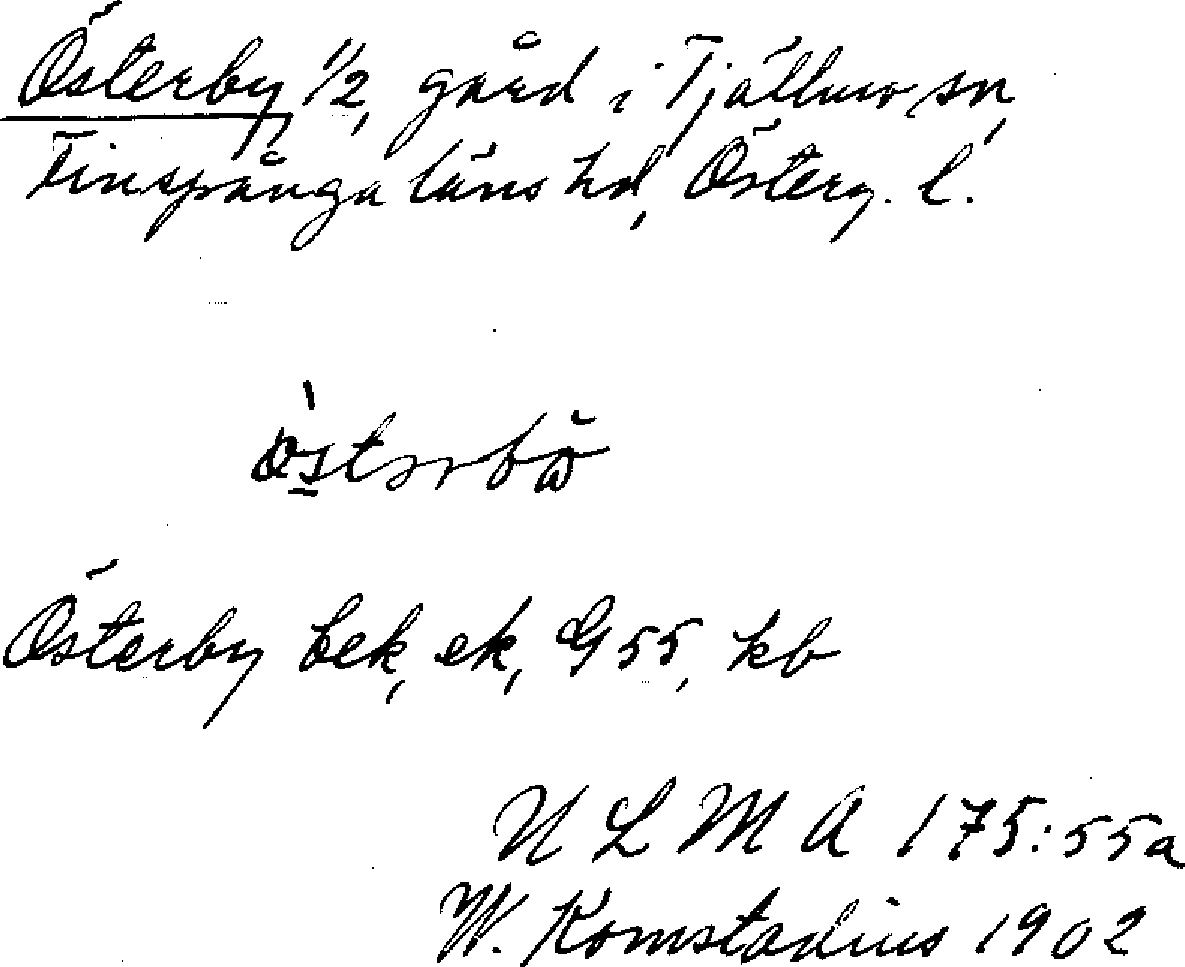 Österby 1/2, gård i Tjällmo sn,
Finspånga läns hd, Österg. l.
Österby bek, ek, G 55, kb
ULMA 175:55a
W. Komstadius 1902